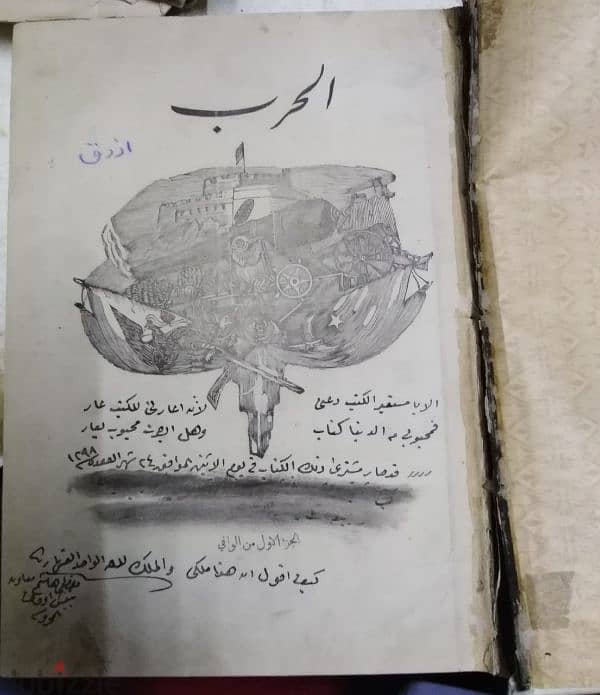 الحرب
ازرق
الا يا مستعير الكتب دعني لأن اعارتي للكتب عار
فمحبوبي من الدنيا كتاب وهل ابصرت محبوب يعار
قد صار مشترى ذلك الكتاب في يوم الاثنين الموافق ٢٤ شهر القعده ١٢٩٨
الجزء الاول من الوافي
كيف اقول ان هذا ملكي والملك لله الواحد القهار